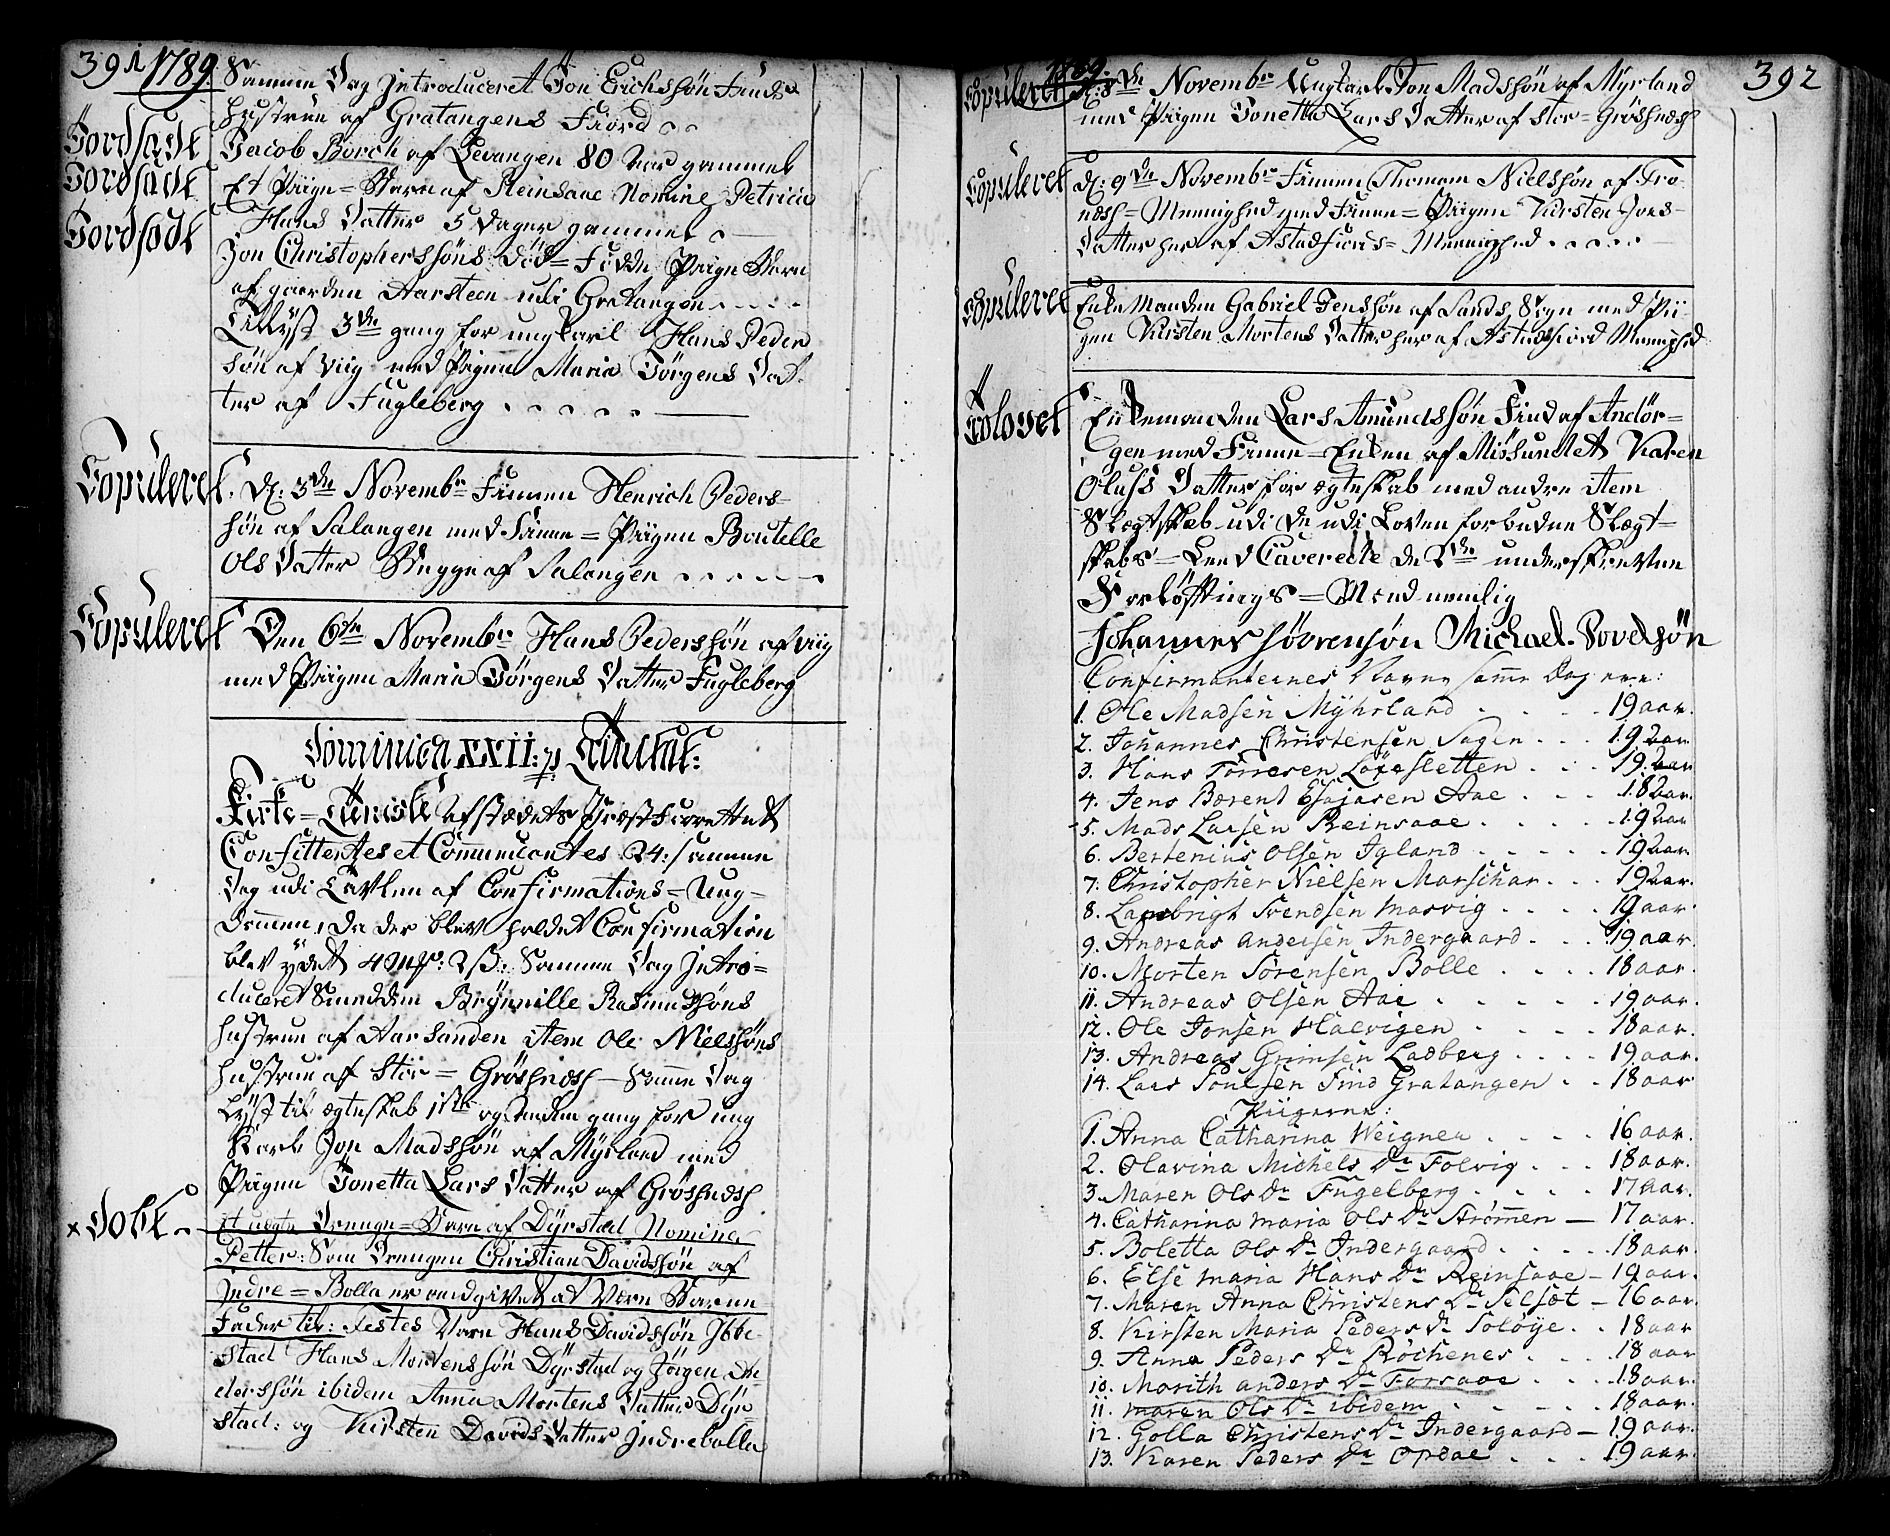 391 1789
Samme Dag Introduceret Jon Erichssøn Finds
hustrue af Gratangens Fiord
Jordsadt
Jacob Borch af Levangen 80 aar gammel
Jordsadt
Et Piige=Barn af Reinsaae Nomine Petricia
Hans Datter 5 Dager gammel
Jordsadt
Jon Christopherssøns Død=Fødde Piige Barn
af gaarden Aarsteen udi Gratangen
Tillyst 3de gang for ungkarl Hans Peder
søn af Viig med Piigen Maria Jørgens Dat-
ter af Fugleberg
Copuleret
D: 3de Novembr Finnen Henrich Peders-
søn af Salangen med Finne=Piigen Boutelle
Ols Datter Brygge af Salangen
Copuleret
Den 6te Novembr Hans Pederssøn af Viig
med Piigen Maria Jørgens Datter Fugleberg
Dominica XXII: p Trinitat:
Kirke=Tieniste af Stædets Præst forrettet
Confittentes et Communicantes 24: samme
Dag udi Tavlen af Confirmations=Ung-
dommen, da der blev holdet Confirmation
blev ydet 4 Mk: 2ß: Samme Dag Intro=
duceret Smedden Brynnille Rasmussøns
hustrue af Aarsanden item Ole Nielssøns
hustrue af Stor=Grøsnæss Samme Dag
lyst til ægteskab 1ste og anden gang for ung
Karl Jon Madssøn af Myrland med
Piigen Jonetta Lars Datter af Grøsnæss
x Døbt
Et uægte Drenge=Barn af Dyrstad Nomine
Petter: Som Drengen Christian Davidssøn af
Indre=Bolla er angivet at være Barne
Fader til: Testes Vare Hans Davidssøn Ibbe-
stad Hans Mortenssøn Dyrstad og Jørgen An-
derssøn ibidem Anna Mortens Datter Dyr
stad: og Kirsten Davids Datter Indrebolla
1789.
392
Copuleret
D: 8de Novembr Ungkarl Jon Madssøn af Myrland
med Piigen Jonetta Lars Datter af Stor=Grøsnæss
Copuleret
D: 9de Novembr Finnen Thomam Nielssøn af Tro-
næss=Meenighed med Finne=Piigen Kirsten Jons-
Datter her af Astafiords=Meenighed
Copuleret
Enke Manden Gabriel Jenssøn af Sands Sogn med Pii-
gen Kirsten Mortens Datter her af Astafiord Meenighed
Trolovet
Enkemanden Lars Amundssøn Find af Andør=
gen med Finne=Enken af Missundet Karen
Oluss Datter for ægteskab med andre item
Slægtskab udi de udi Loven forbudne Slægt=
skabs=Leed Caverede de 2de underskrevne
Forløftnings=Mænd nemlig
Johannes Sørensøn Michael Povelsøn
Confirmanternes Navne samme Dag ere:
1. Ole Madsen Myhrland 19 aar.
2. Johannes Christensen Sagen 19 aar.
3. Hans Torresen Laxesletten 19 aar
4. Jens Bærent Esajasen Aae 18 aar.
5. Mads Larsen Reinsaae 19 aar
6. Bertenius Olsen Igland 19 aar.
7. Christopher Nielsen Marschar 19 aar.
8. Lambrigt Svendsen Masvig 19 aar.
9. Andreas Andersen Indergaard 19 aar.
10. Morten Sørensen Bolle 18 aar.
11. Andreas Olsen Aae 19 aar.
12. Ole Jonsen Halvigen 18 aar.
13. Andreas Grimsen Ladberg 19 aar.
14. Lars Poulsen Find Gratangen 18 aar
Piigerne:
1. Anna Catharina Weigner 16 aar.
2. Olavina Michels Dr Tolvig 18 aar.
3. Maren Ols Dr Fugelberg 17 aar.
4. Catharina Maria Ols Dr Strømmen 17 aar.
5. Boletta Ols Dr Indergaard 18 aar.
6. Else Maria Hans Dr Reinsaae 19 aar.
7. Maren Anna Christens Dr Selsæt 16 aar.
8. Kirsten Maria Peders Dr Soløye 18 aar
9. Anna Peders Dr Røchenes 18 aar
10. Marith Anders Dr Forsaae 18 aar.
11. Maren Ols Dr ibidem 18 aar.
12. Golla Christens Dr Indergaard 19 aar.
13. Karen Peders Dr Opdal 19 aar.